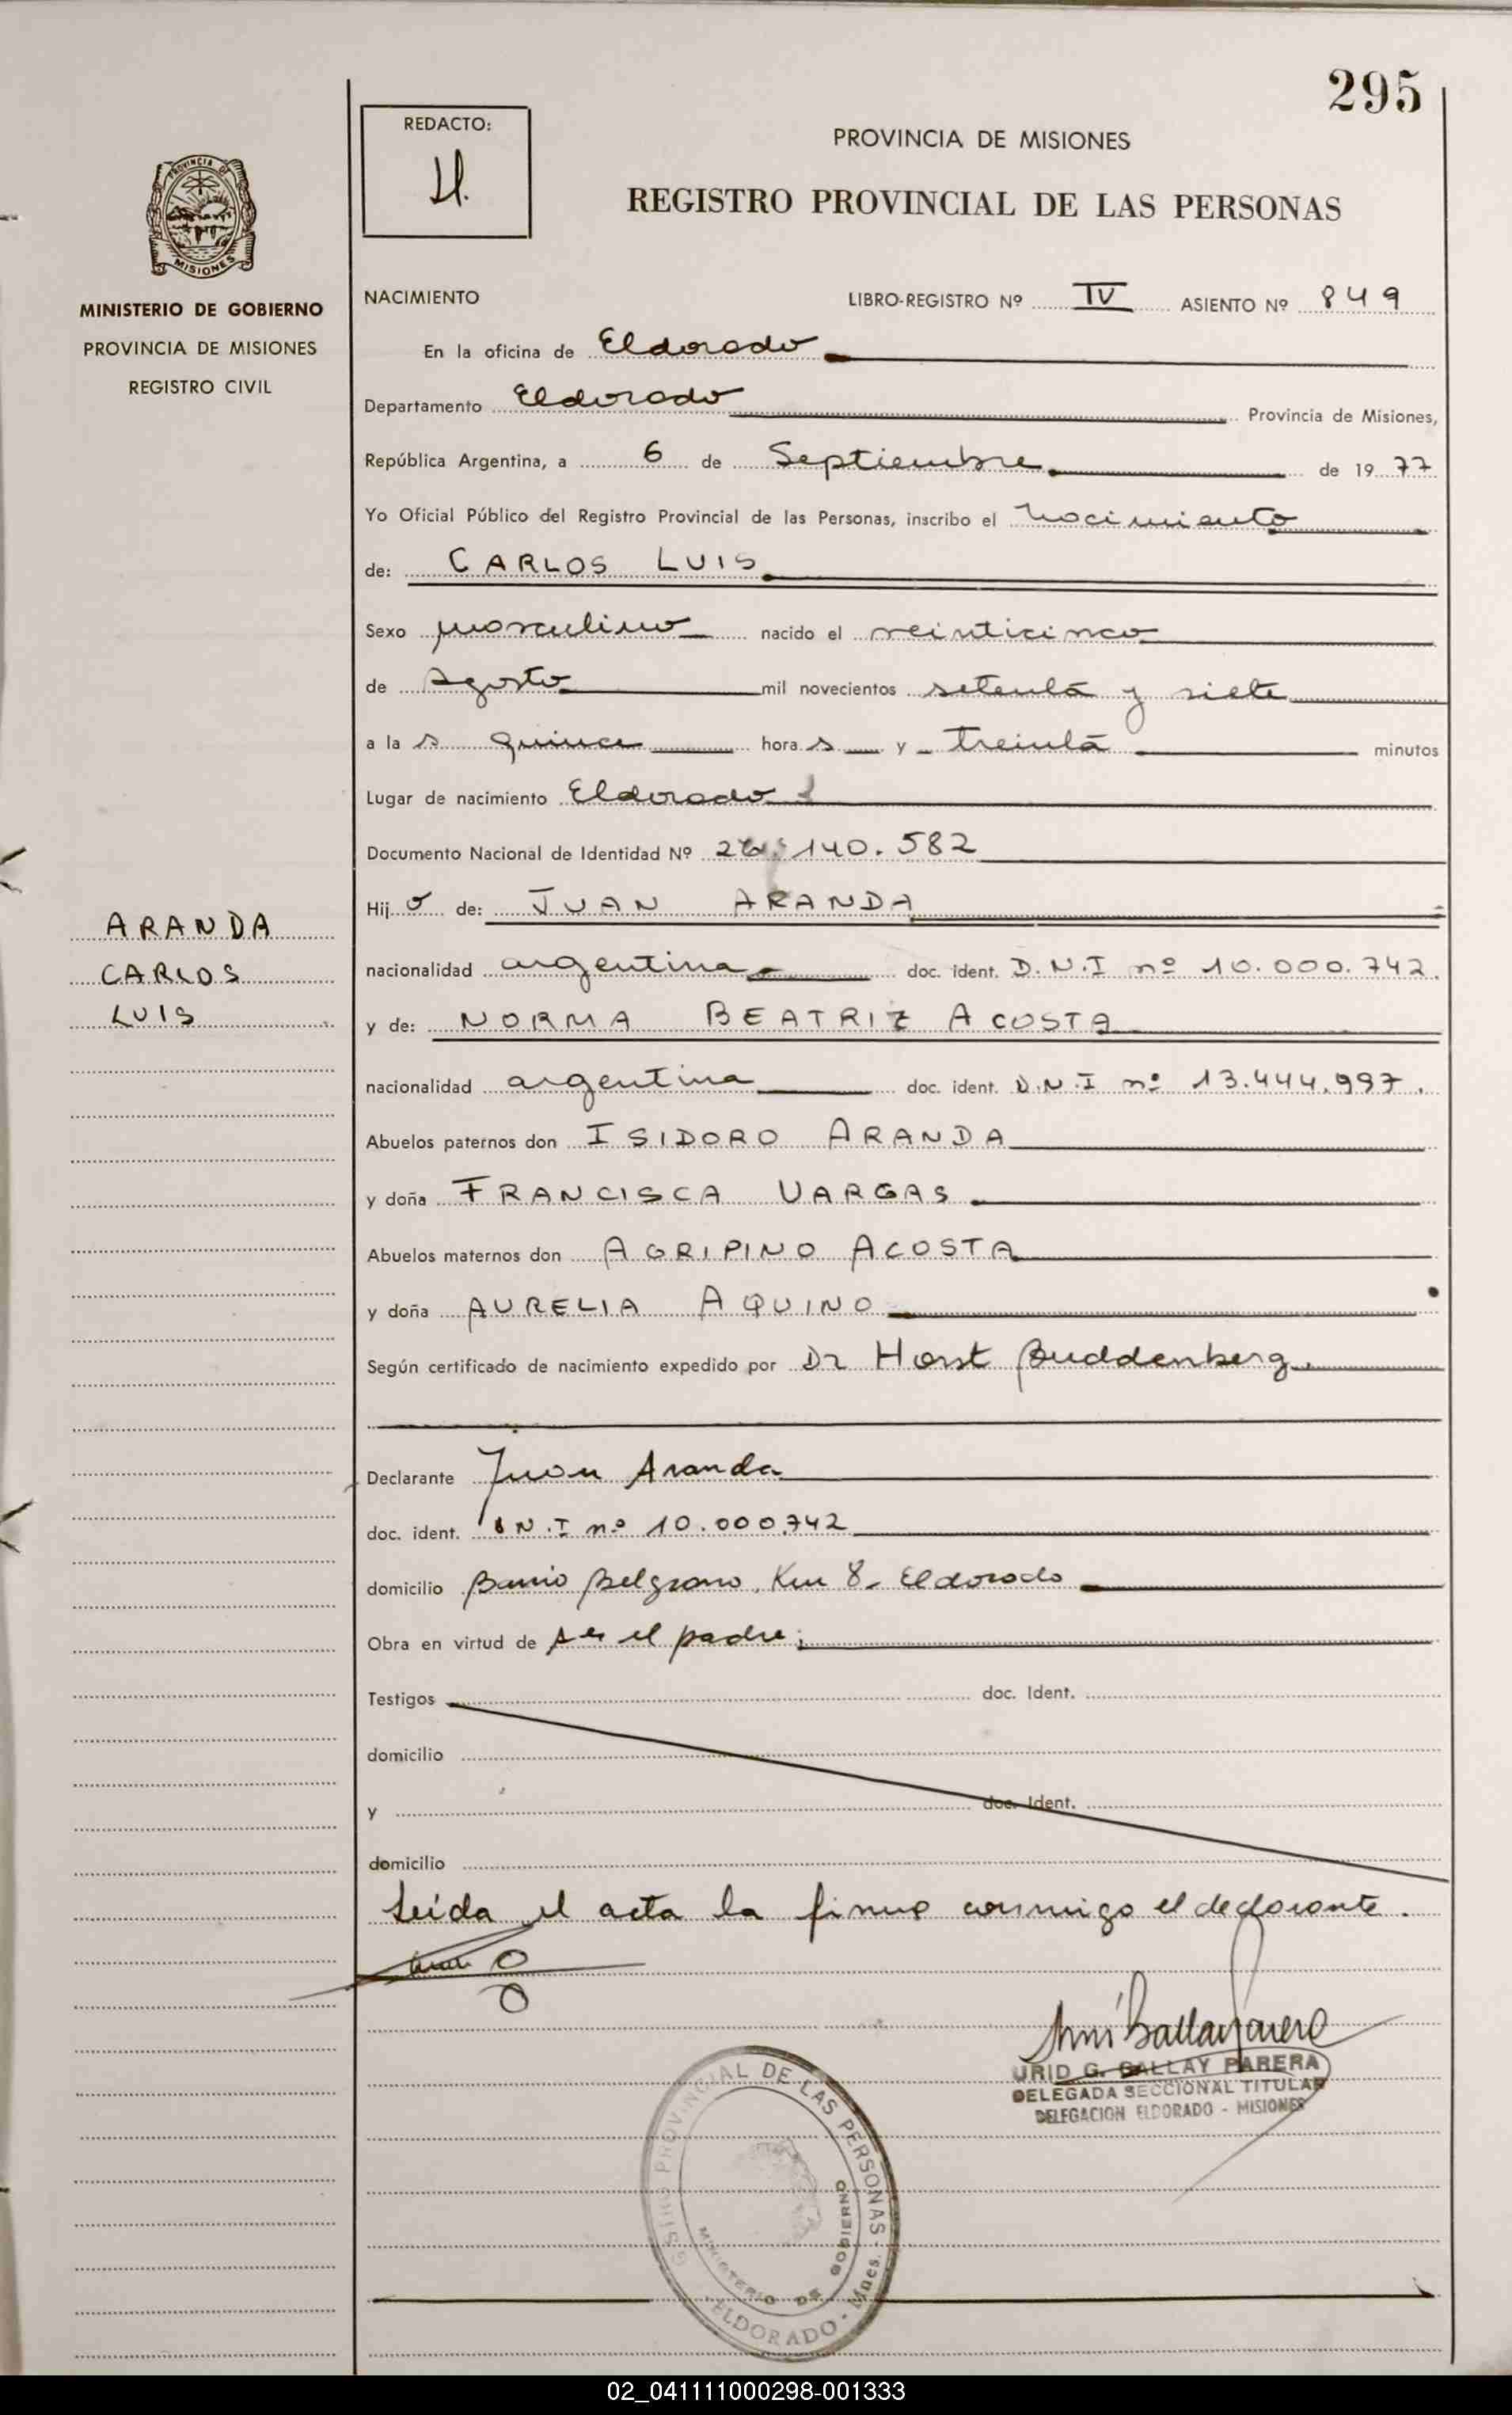 295
REDACTO:
PROVINCIA DE MISIONES
REGISTRO PROVINCIAL DE LAS PERSONAS
PROVINCIA DE
MISIONES
MINISTERIO DE GOBIERNO
PROVINCIA DE MISIONES
REGISTRO CIVIL
NACIMIENTO LIBRO-REGISTRO Nº IV ASIENTO Nº 849
En la oficina de Eldorado
Departamento Eldorado Provincia de Misiones,
República Argentina, a 6 de Septiembre de 1977
Yo Oficial Público del Registro Provincial de las Personas, inscribo el nacimiento
de: CARLOS LUIS
Sexo masculino nacido el veinticinco
de Agosto mil novecientos setenta y siete
a la s quince hora s y treinta minutos
Lugar de nacimiento Eldorado
Documento Nacional de Identidad Nº 140.582
Hijo de: JUAN ARANDA
nacionalidad argentina doc. ident. D.N.I nº 10.000.742.
y de: NORMA BEATRIZ ACOSTA
nacionalidad argentina doc. ident. D.N.I nº 13.444.997.
Abuelos paternos don ISIDORO ARANDA
y doña FRANCISCA VARGAS
Abuelos maternos don AGRIPINO ACOSTA
y doña AURELIA AQUINO
Según certificado de nacimiento expedido por Dr Horst Buddenberg.
Declarante Juan Aranda
doc. ident. D N.I nº 10.000.742
domicilio Barrio Belgrano, Km 8- Eldorado
Obra en virtud de ser el padre;
Testigos doc. Ident.
domicilio
y doc. Ident.
domicilio
Leída el acta la firma conmigo el declarante.
ARANDA
CARLOS
LUIS
URID G. GALLAY PARERA
DELEGADA SECCIONAL TITULAR
DELEGACION ELDORADO - MISIONES
PROVINCIAL DE LAS PERSONAS
MINISTERIO DE GOBIERNO
ELDORADO - Mnes.
02_041111000298-001333